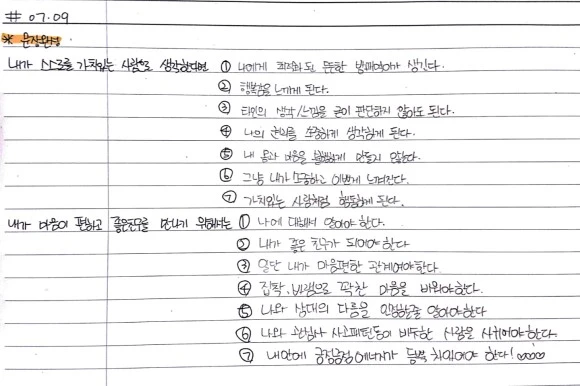 # 07.09
* 문장완성
내가 스스로를 가치있는 사람으로 생각한다면 ① 나에게 최적화된 튼튼한 방패막이가 생긴다.
② 행복감을 느끼게 된다.
③ 타인의 생각/느낌을 굳이 판단하지 않아도 된다.
④ 나의 를 소중하게 생각하게 된다.
⑤ 내 몸과 마음을 하게 만들지 않는다.
⑥ 그냥 내가 소중하고 이쁘게 느껴진다.
⑦ 가치있는 사람처럼 행동하게 된다.
내가 마음이 편하고 좋은친구를 만나기 위해서는 ① 나에 대해서 알아야 한다.
② 내가 좋은 친구가 되어야 한다
③ 일단 내가 마음편한 관계여야한다.
④ 집착, 바램으로 꽉찬 마음을 비워야한다.
⑤ 나와 상대의 다름을 인정할줄 알아야한다
⑥ 나와 관심사 사고패턴등이 비슷한 사람을 사귀어야 한다.
⑦ 내안에 긍정 에너지가 듬뿍 차있어야 한다! ♡♡♡♡